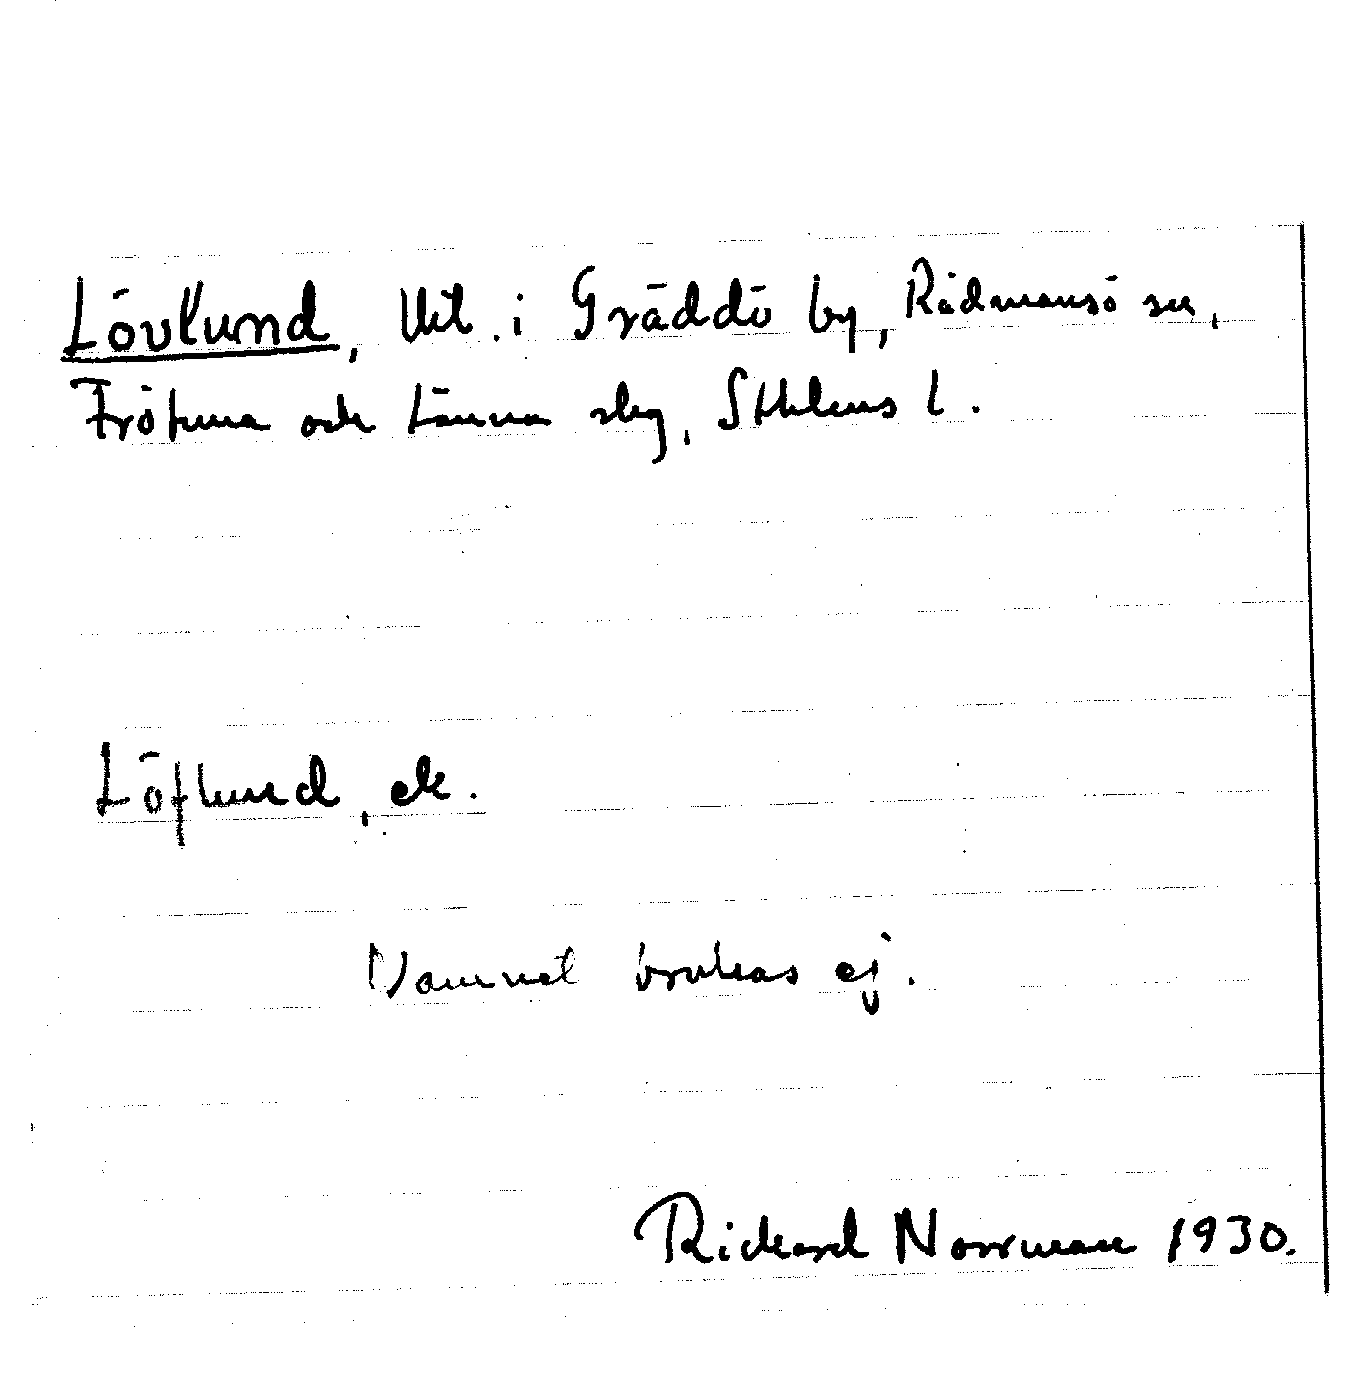 Lövlund, lht. i Gräddö by, Rådmansö sn,
Frötuna och Länna skg, Sthlms l.
Löflund, ek.
Namnet brukas ej.
Rickard Norrman 1930.